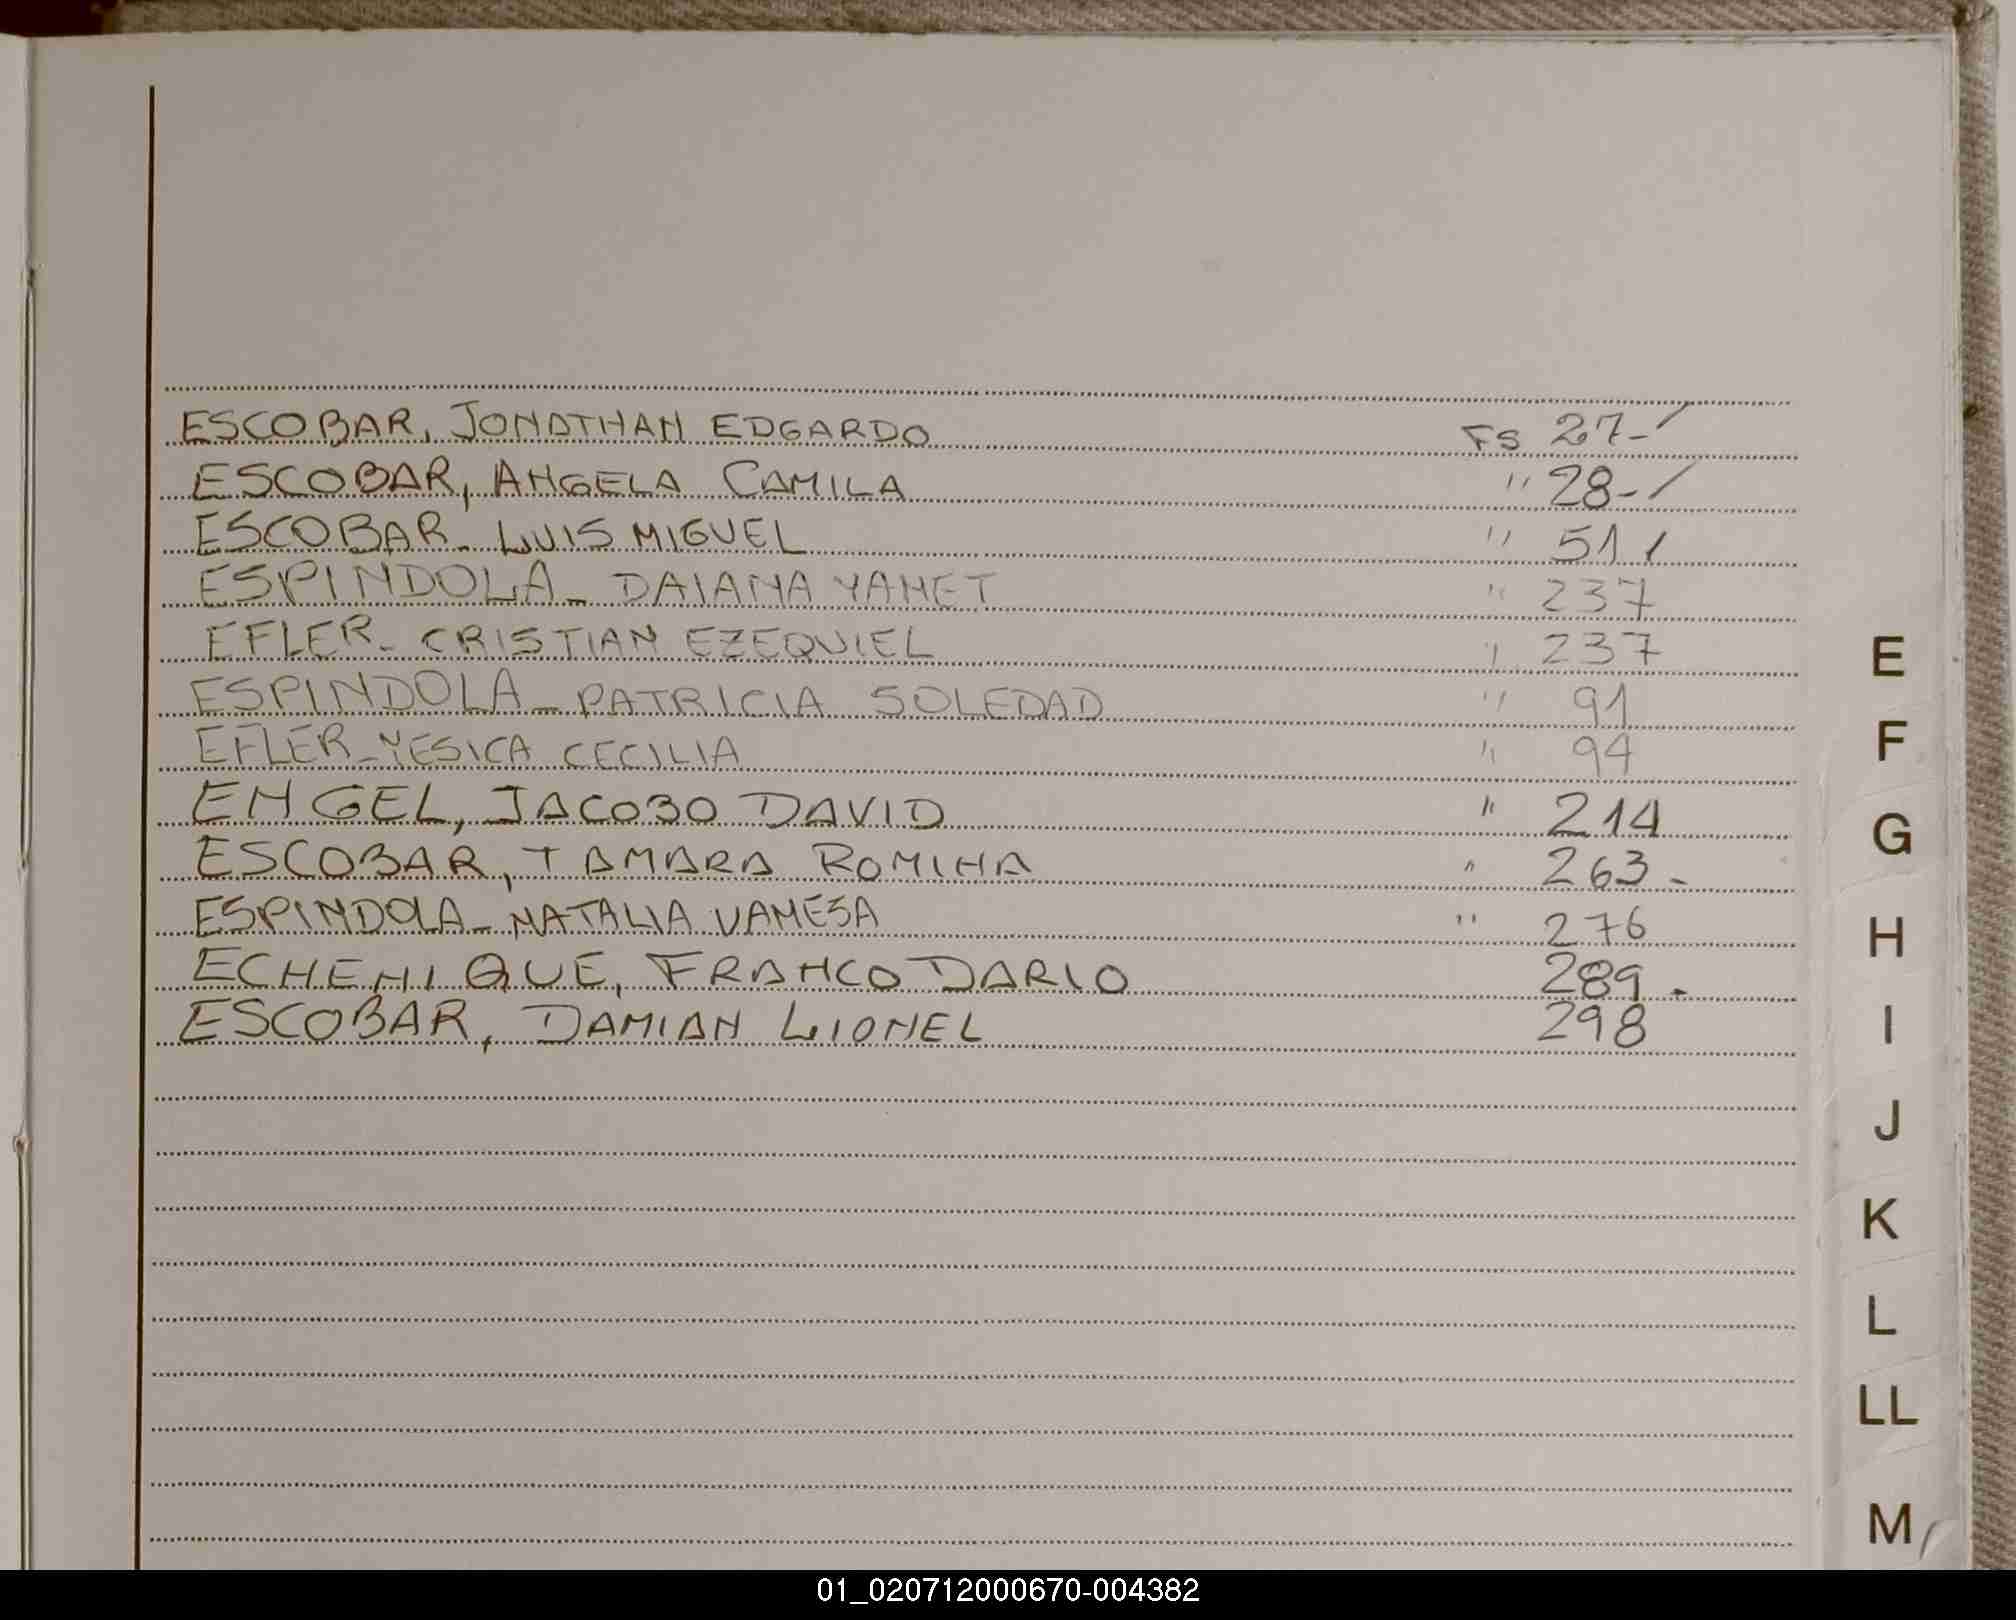 ESCOBAR, JONATHAN EDGARDO Fs 27-/
ESCOBAR, ANGELA CAMILA " 28-/
ESCOBAR- LUIS MIGUEL " 51/
ESPINDOLA- DAIANA YANET " 237
EFLER- CRISTIAN EZEQUIEL " 237
ESPINDOLA- PATRICIA SOLEDAD " 91
EFLER-YESICA CECILIA " 94
ENGEL, JACOBO DAVID " 214
ESCOBAR, TAMARA ROMINA " 263-
ESPINDOLA- NATALIA VANESA " 276
ECHENIQUE, FRANCO DARIO 289.
ESCOBAR, DAMIAN LIONEL 298
E
F
G
H
I
J
K
L
LL
M
01_020712000670-004382